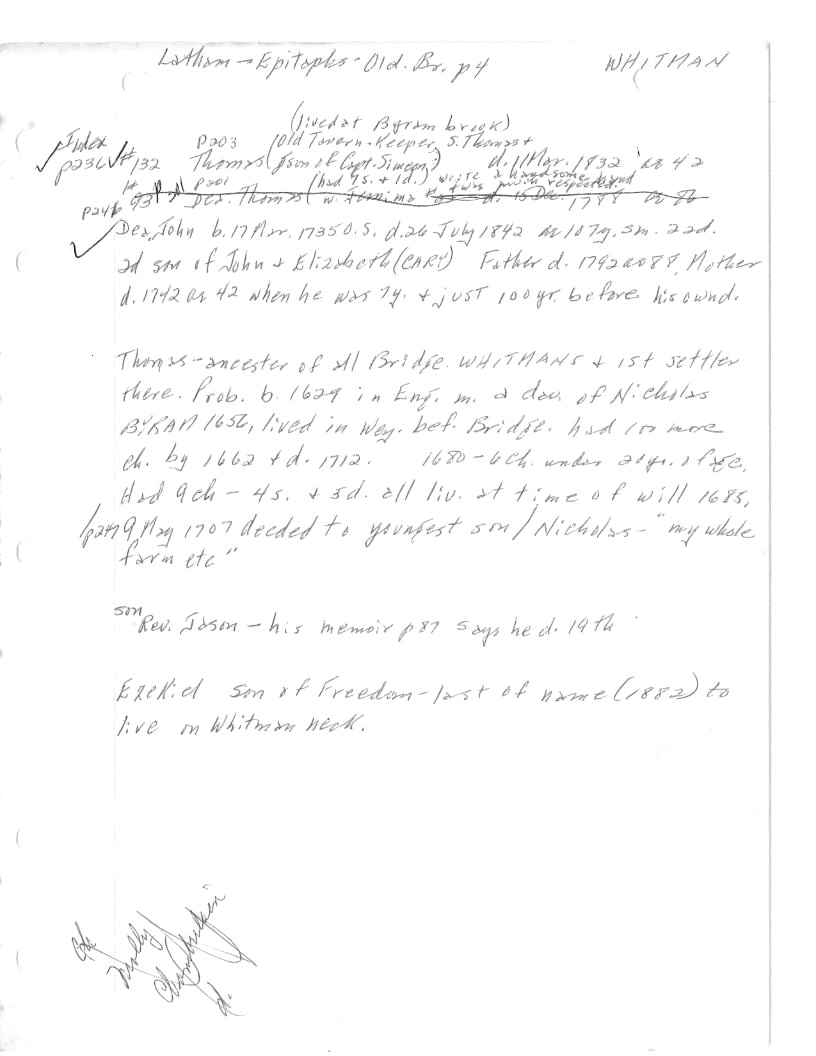 Latham - Epitaphs - Old. Br. p4 WHITMAN
(lived at Byram brook)
Index p203 (Old Tavern-Keeper, S. Thomas +
p236 #132 Thomas (son of Capt. Simeon?) d. 11 Mar. 1832 ae 42
1# p201 (had 9s. + 1d.) write a handsome hand
p246 93 Dea. Thomas (w. Jemima + was much respected. d. 15 Dec. 1788 ae 86
Dea. John b. 17 Mar. 1735 O.S. d. 26 July 1842 ae 107y. 3m. 22d.
2d son of John + Elizabeth (CARY) Father d. 1792 ae 88, Mother
d. 1742 ae 42 when he was 7y. + just 100 yr. before his own d.
Thomas - ancester of all Bridge. WHITMANS + 1st settler
there. Prob. b. 1629 in Eng. m. a dau. of Nicholas
BYRAM 1656, lived in Wey. bef. Bridge. had 1 or more
ch. by 1662 + d. 1712. 1680 - 6 ch. under 20 yr. of age.
Had 9 ch - 4s. + 5d. all liv. at time of will 1685,
/p247 9 May 1707 deeded to youngest son / Nicholas - "my whole
farm etc"
son Rev. Jason - his memoir p87 says he d. 19th
Ezekiel son of Freedom - last of name (1882) to
live on Whitman neck.
Molly
d.